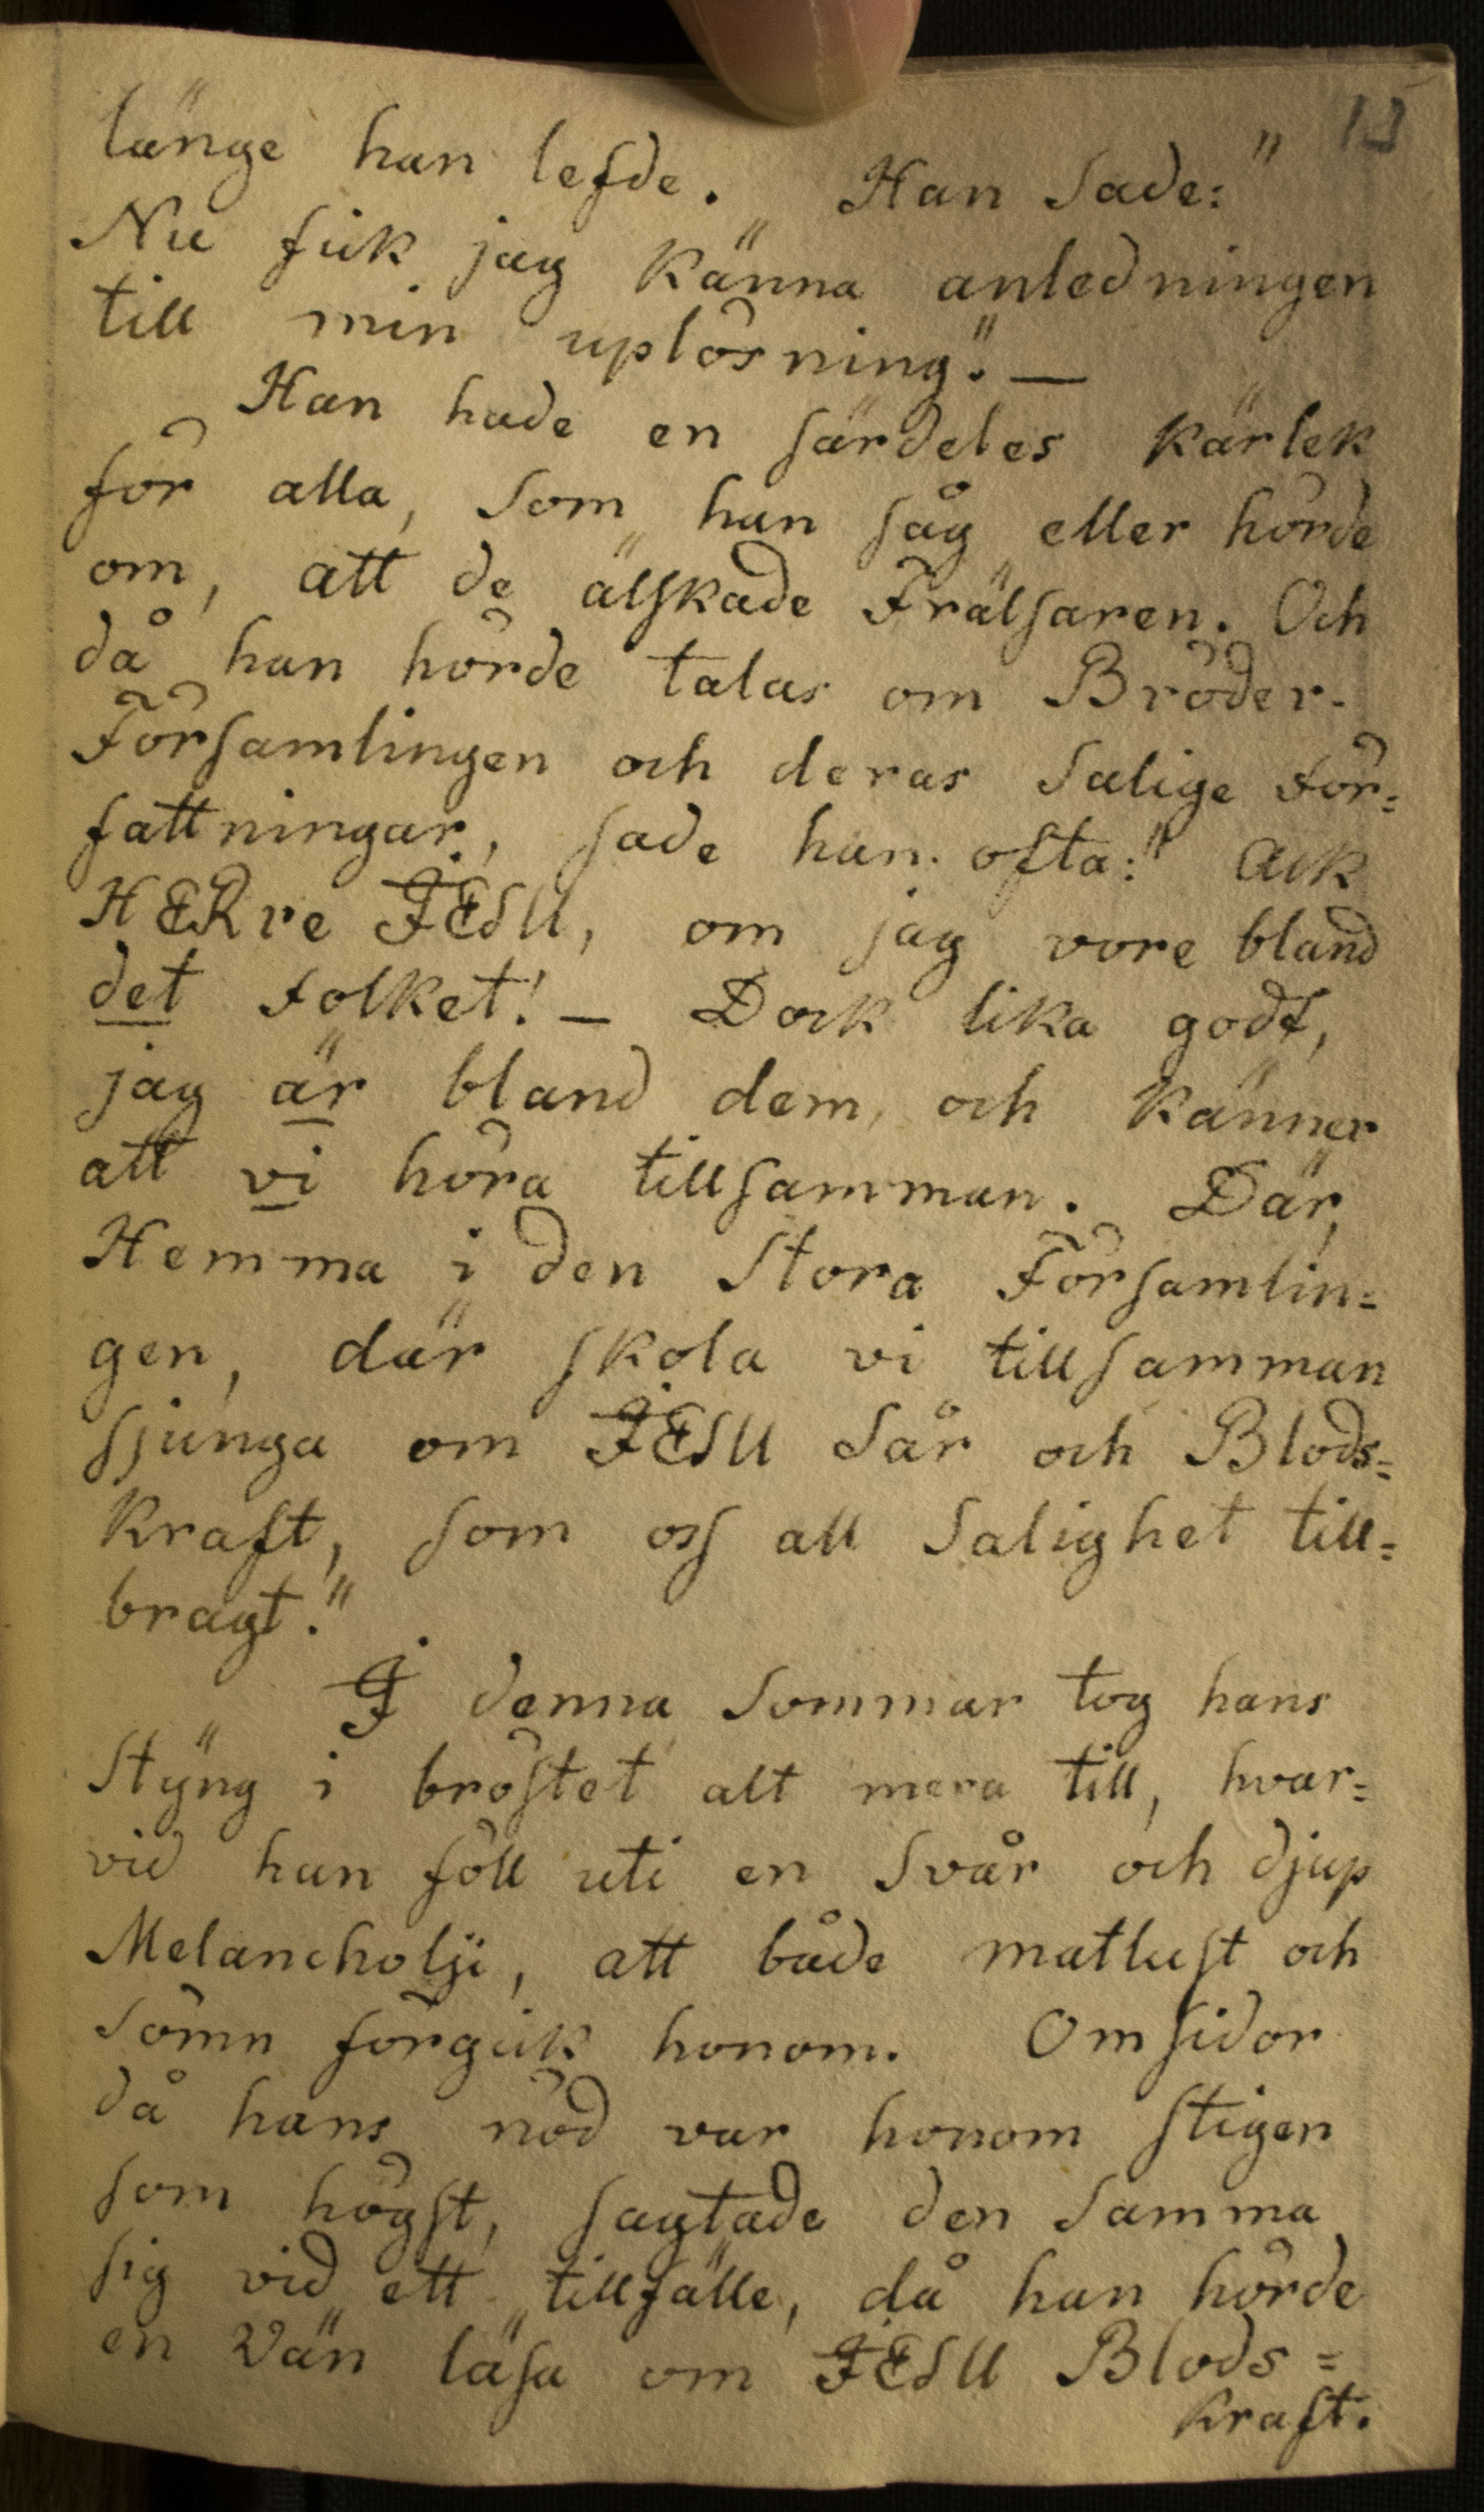 13
länge han lefde. Han Sade: "
Nu fick jag känna anledningen
till min uplösning". —
Han hade en särdeles kärlek
för alla, Som han såg eller hörde
om, att de älskade Frälsaren. Och
då han hörde talas om Bröder-
Församlingen och deras Salige För=
fattningar, sade han ofta: " Ack
HERre JESU, om jag vore bland
det Folket! — Dock lika godt,
jag är bland dem, och känner
att vi höra tillsamman. Där,
Hemma i den Stora Församlin=
gen, där skola vi tillsamman
sjunga om JESU Sår och Blods=
kraft, som oss all Salighet till=
bragt."
I denna Sommar tog hans
Stÿng i bröstet alt mera till, hvar=
vid han föll uti en Svår och djup
Melancholji, att både matlust och
Sömn förgick honom. Omsidor
då hans nöd var honom stigen
som högst, sagtade den Samma
sig vid ett tillfälle, då han hörde
en Vän läsa om JESU Blods=
kraft.